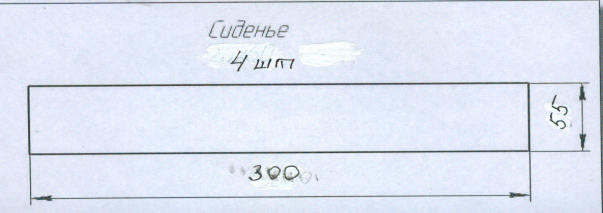 Сиденье
4 шт
55
300